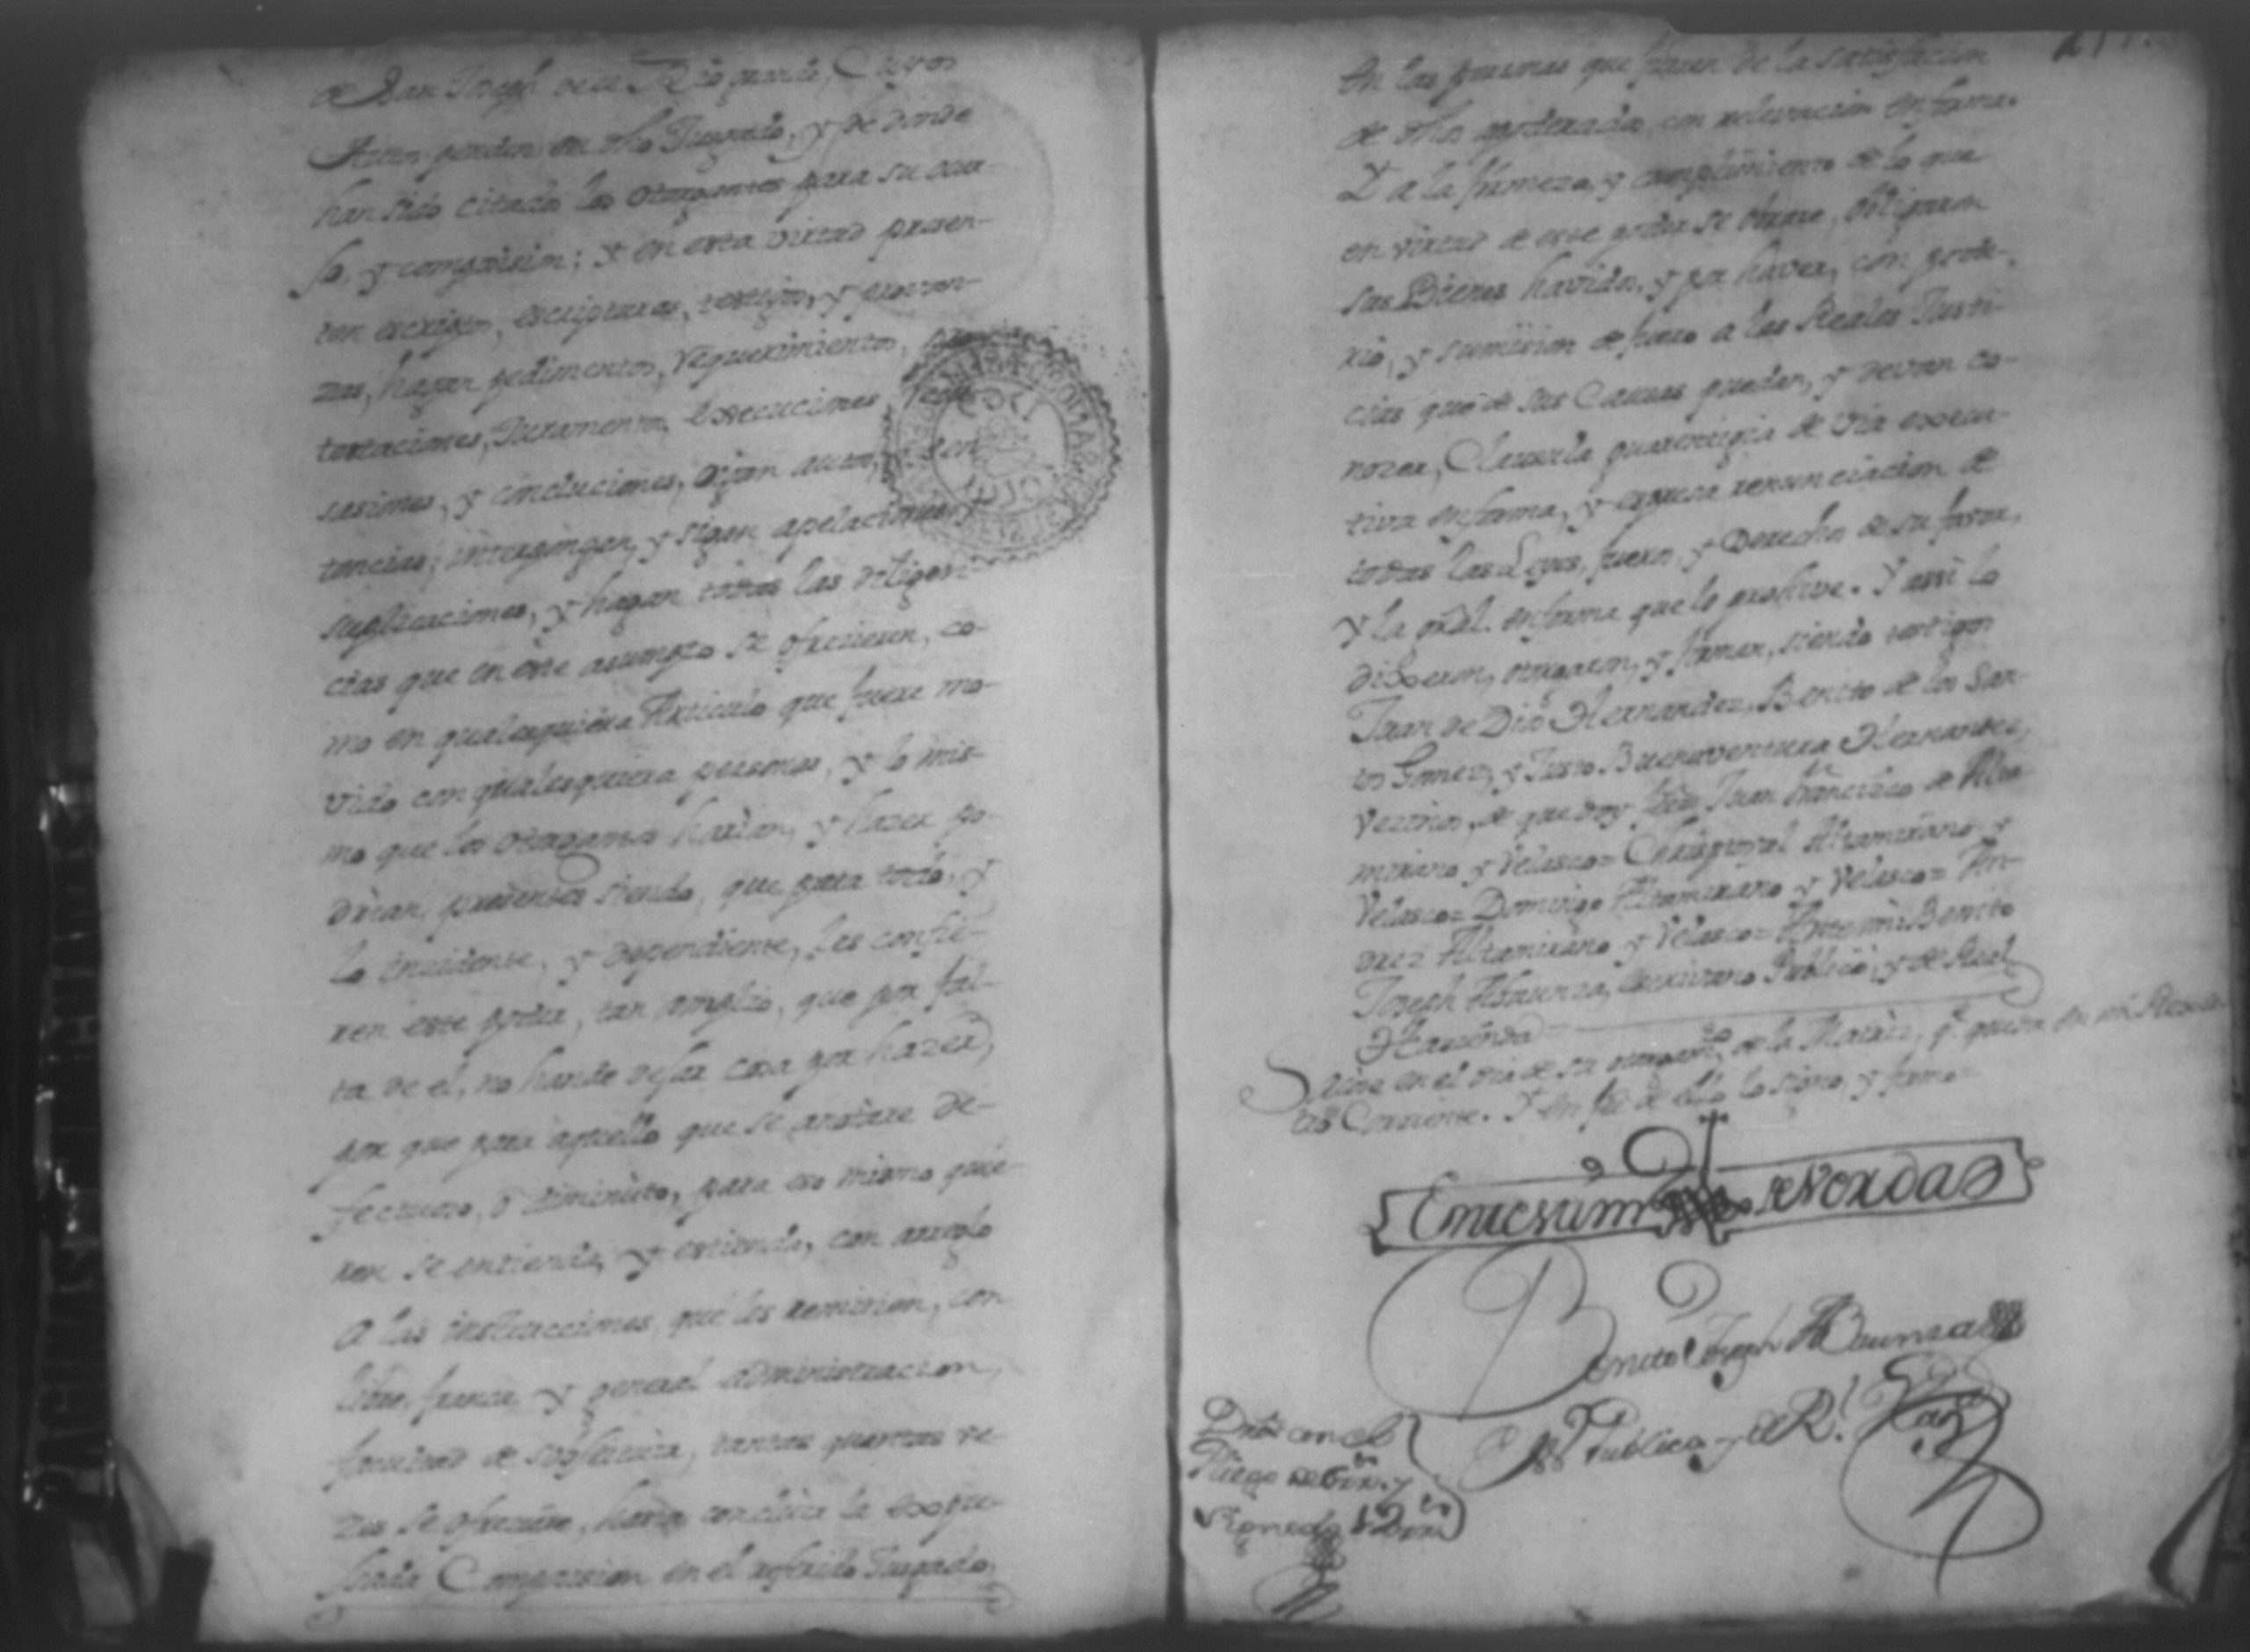 de Dan Joseph de el Rio grande, Cuyos
Autos penden en dho Juzgado, y de donde
han sido citado los otorgantes para su ocur
so, y compoisision; y en esta virtud presen-
ten escriptos, escripturas, testigos, y provan-
zas, hagan pedimentos, requerimientos, pro
textaciones, Juramentos, Execuciones, recu
saciones, y concluciones, oigan autos, y sen
tencias; interpongan, y sigan apelaciones, y
suplicaciones, y hagan todas las diligen-
cias que en este asumpto se ofrecieren, co-
mo en qualesquiera Articulo que fuere mo-
vido con qualesquiera personas, y lo mis-
mo que los otorgantes harian, y hazer po-
drian, presentes siendo, que para todo, y
lo incidente, y dependiente, les confie-
ren este poder, tan amplio, que por fal-
ta de el, no hande dejar cosa por hazer,
por que para aquello que se anotare de-
fectuoso, ó diminuto, para eso mismo quie-
ren se entienda, y estienda, con arreglo
a las instrucciones, que les remitiran, con
libre, franca, y general administracion,
facultad de substituirle, tantas quantas ve-
zes se ofreciere, hasta concluir la expre-
sada Composision en el referido Juzgado,
en las personas que fueren de la satisfaccion
de dhos apoderados, con relevacion en forma.
Y a la firmeza, y cumplimiento de lo que
en virtud de este poder se obrare, obligaron
sus Bienes havidos, y por haver, con pode-
rio, y sumision de fuero a las Reales Justi-
cias que de sus Causas puedan, y devan co-
nozer, Clausula guarentigia de via execu-
tiva en forma, y expresa renunciacion de
todas las Leyes, fueros, y Derechos de su favor,
y la gral. en forma que lo prohive. Y assi lo
dixeron, otorgaron, y firman, siendo testigos
Juan de Dios Hernandez, Benito de los San-
tos Gomez, y Justo Buenaventura Hernandez,
Vezinos, de que doy fee. Juan Francisco de Alta
mirano y Velasco= Christoval Altamirano y
Velasco= Domingo Altamirano y Velasco= An-
drez Altamirano y Velasco= Antemi: Benito
Joseph Abaunza, Escrivano Publico, y de Real
Hazienda
Sacòse en el dia de su otorgamto, de la Matriz, qe. queda en mi Regis
tro Corriente. Y en fee de ello lo signo, y firmo=
En de Verdad
Benito Joseph Abaunza
Publico y de Rl. Hazda
Dros con el
Pliego